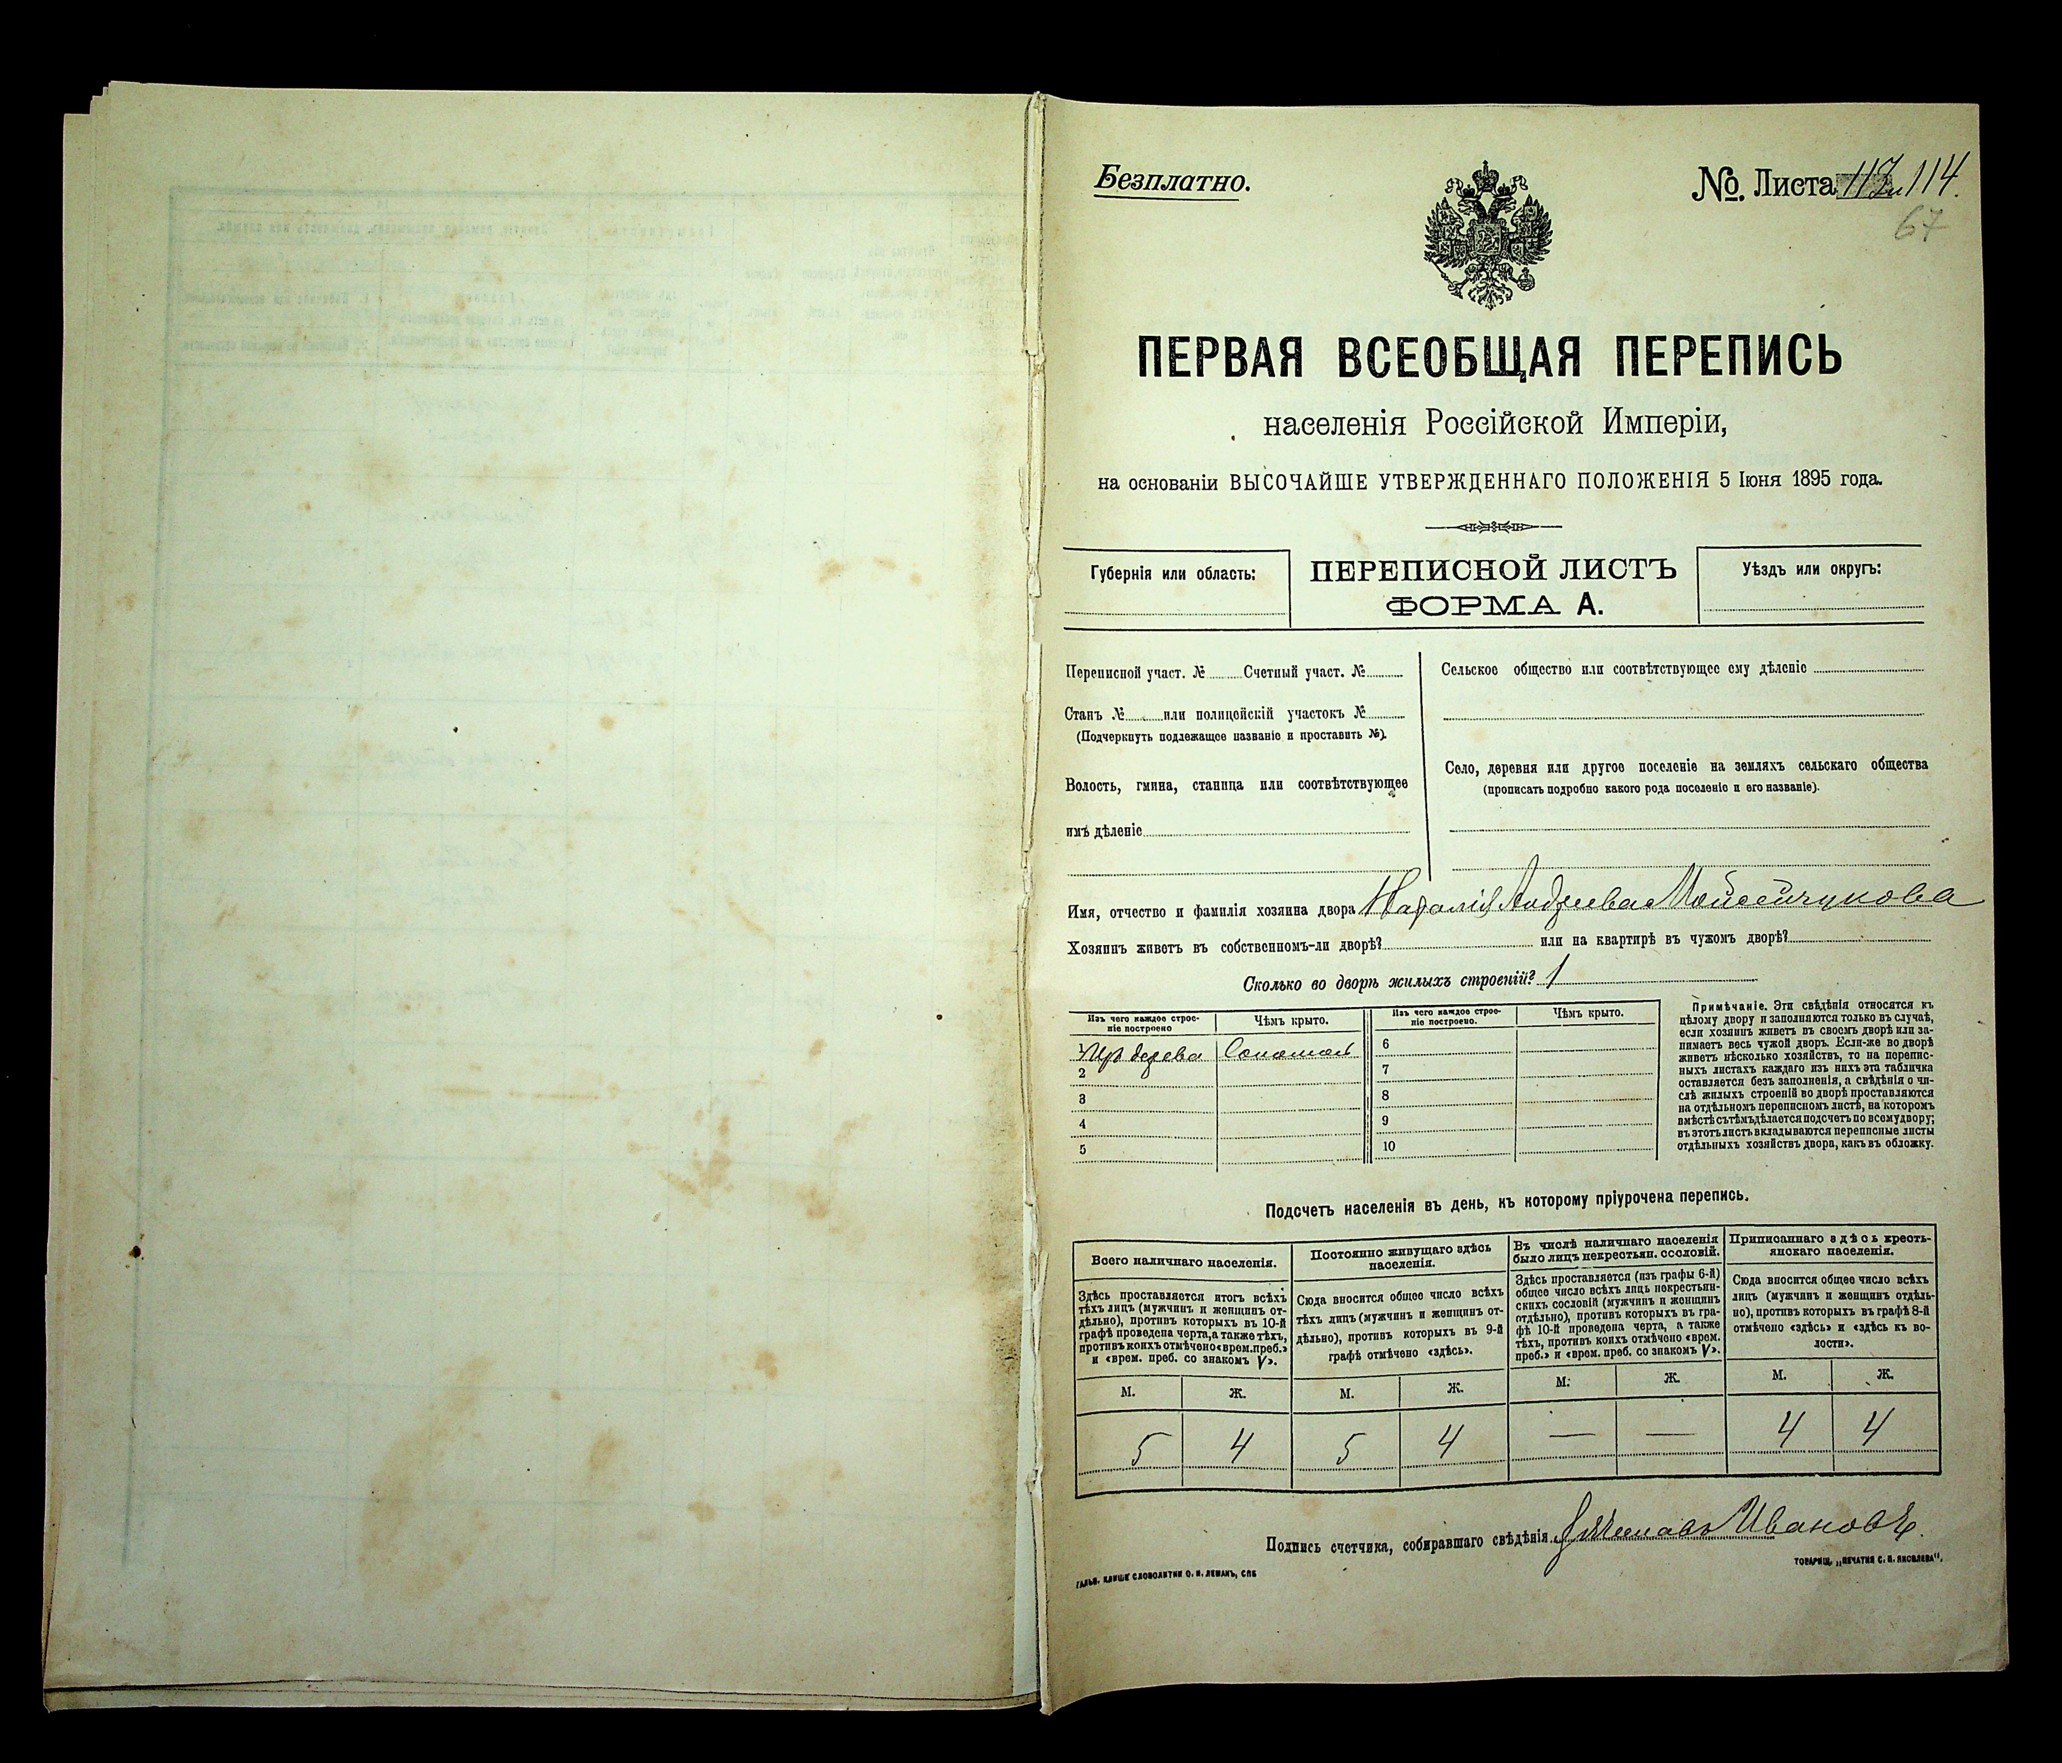 Безплатно.
№. Листа 114.
67
ПЕРВАЯ ВСЕОБЩАЯ ПЕРЕПИСЬ
населенія Россійской Имперіи,
на основаніи ВЫСОЧАЙШЕ УТВЕРЖДЕННАГО ПОЛОЖЕНІЯ 5 Іюня 1895 года.
Губернія или область:
ПЕРЕПИСНОЙ ЛИСТЪ
ФОРМА А.
Уѣздъ или округъ:
Переписной участ. № Счетный участ. №
Станъ № или полицейскій участокъ №
(Подчеркнуть подлежащее названіе и проставить №).
Волость, гмина, станица или соотвѣтствующее
имъ дѣленіе
Сельское общество или соотвѣтствующее ему дѣленіе
Село, деревня или другое поселеніе на земляхъ сельскаго общества
(прописать подробно какого рода поселеніе и его названіе).
Имя, отчество и фамилія хозяина двора Наталія Андреева Мойсейчукова
Хозяинъ живетъ въ собственномъ-ли дворѣ? или на квартирѣ въ чужомъ дворѣ?
Сколько во дворѣ жилыхъ строеній? 1
Изъ чего каждое строе-
ніе построено
Чѣмъ крыто.
Изъ чего каждое строе-
ніе построено.
Чѣмъ крыто.
1 Изъ дерева Соломой
2
3
4
5
6
7
8
9
10
Примѣчаніе. Эти свѣдѣнія относятся къ
цѣлому двору и заполняются только въ случаѣ,
если хозяинъ живетъ въ своемъ дворѣ или за-
нимаетъ весь чужой дворъ. Если-же во дворѣ
живетъ нѣсколько хозяйствъ, то на перепис-
ныхъ листахъ каждаго изъ нихъ эта табличка
оставляется безъ заполненія, а свѣдѣнія о чи-
слѣ жилыхъ строеній во дворѣ проставляются
на отдѣльномъ переписномъ листѣ, на которомъ
вмѣстѣ съ тѣмъ дѣлается подсчетъ по всему двору;
въ этотъ листъ вкладываются переписные листы
отдѣльныхъ хозяйствъ двора, какъ въ обложку.
Подсчетъ населенія въ день, къ которому пріурочена перепись.
Всего наличнаго населенія.
Здѣсь проставляется итогъ всѣхъ
тѣхъ лицъ (мужчинъ и женщинъ от-
дѣльно), противъ которыхъ въ 10-й
графѣ проведена черта, а также тѣхъ,
противъ коихъ отмѣчено «врем. преб.»
и «врем. преб. со знакомъ V».
Постоянно живущаго здѣсь
населенія.
Сюда вносится общее число всѣхъ
тѣхъ лицъ (мужчинъ и женщинъ от-
дѣльно), противъ которыхъ въ 9-й
графѣ отмѣчено «здѣсь».
Въ числѣ наличнаго населенія
было лицъ некрестьян. сословій.
Здѣсь проставляется (изъ графы 6-й)
общее число всѣхъ лицъ некрестьян-
скихъ сословій (мужчинъ и женщинъ
отдѣльно), противъ которыхъ въ гра-
фѣ 10-й проведена черта, а также
тѣхъ, противъ коихъ отмѣчено «врем.
преб.» и «врем. преб. со знакомъ V».
Приписаннаго здѣсь кресть-
янскаго населенія.
Сюда вносится общее число всѣхъ
лицъ (мужчинъ и женщинъ отдѣль-
но), противъ которыхъ въ графѣ 8-й
отмѣчено «здѣсь» и «здѣсь къ во-
лости».
М. Ж. М. Ж. М. Ж. М. Ж.
5 4 5 4 — — 4 4
Подпись счетчика, собиравшаго свѣдѣнія Ивановъ.
ГАЛЬВ. КЛИШЕ СЛОВОЛИТНИ О. И. ЛЕМАНЪ, СПБ
ТОВАРИЩ. „ПЕЧАТНЯ С. П. ЯКОВЛЕВА".